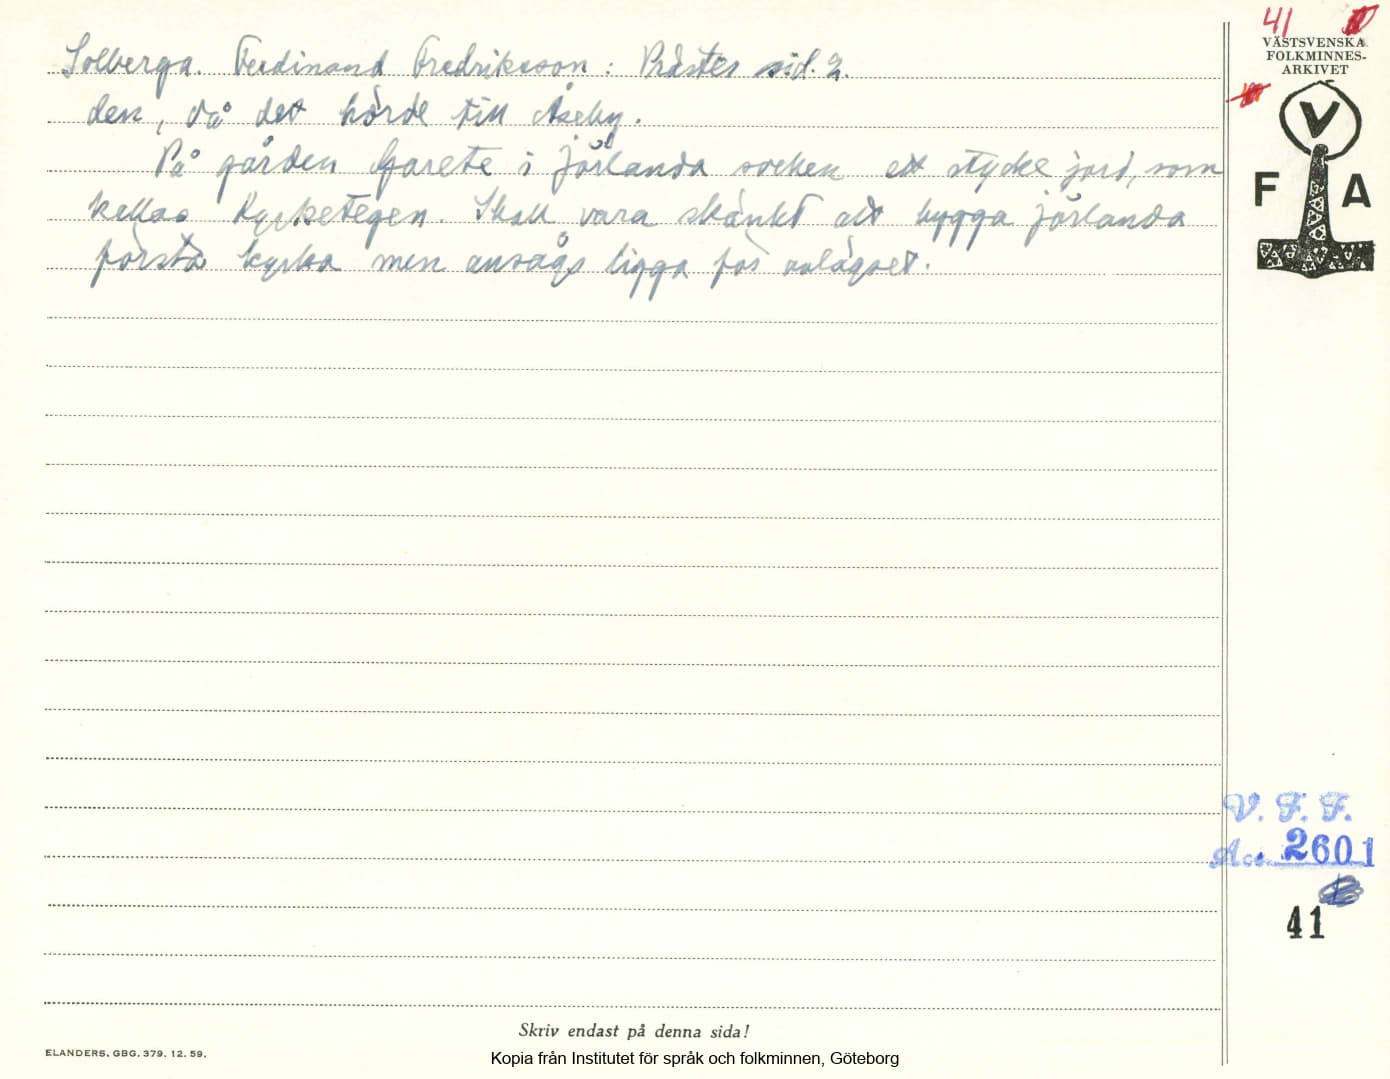 41
VÄSTSVENSKA
FOLKMINNES-
ARKIVET
V
F A
Solberga. Ferdinand Fredriksson: Präster sid. 2.
den, då det hörde till Åseby.
På gården Grarete i Jörlanda socken ett stycke jord, som
kallas Kyrketegen. Skall vara skänkt att bygga Jörlanda
första kyrka men ansågs ligga för avlägset.
V. F. F.
Acc. 2601
41
Skriv endast på denna sida!
ELANDERS, GBG. 379. 12. 59.
Kopia från Institutet för språk och folkminnen, Göteborg